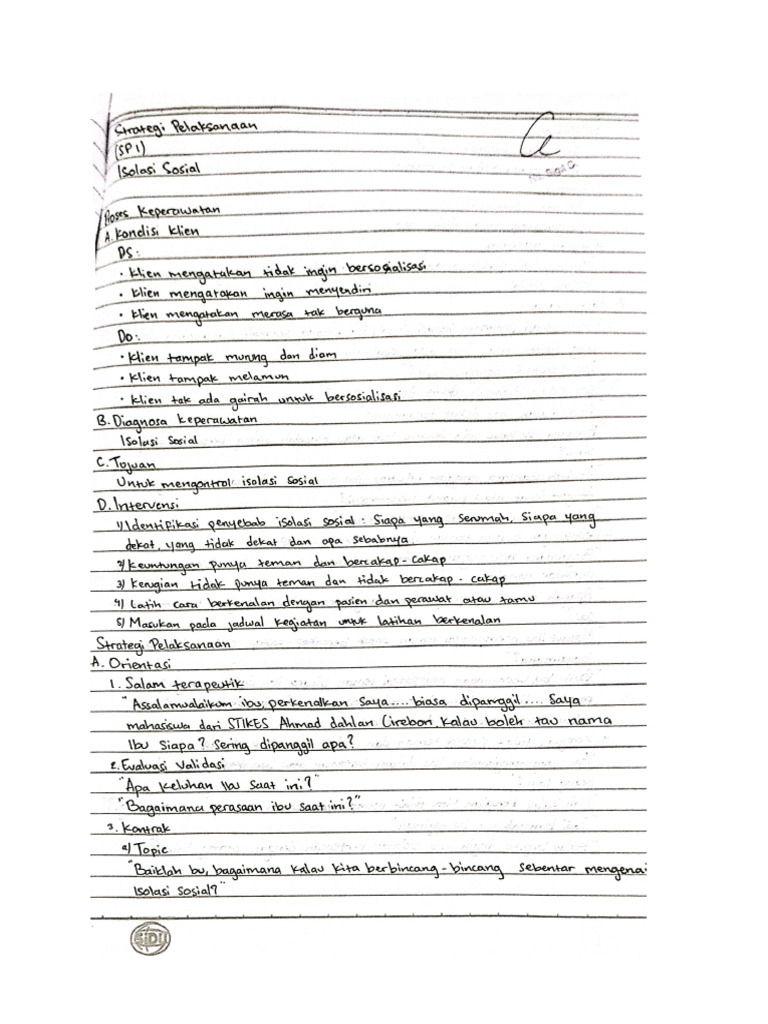 Strategi Pelaksanaan
(SP1)
Isolasi Sosial
Proses Keperawatan
A. Kondisi Klien
DS:
• Klien mengatakan tidak ingin bersosialisasi
• Klien mengatakan ingin menyendiri
• Klien mengatakan merasa tak berguna
Do:
• Klien tampak murung dan diam
• Klien tampak melamun
• Klien tak ada gairah untuk bersosialisasi
B. Diagnosa Keperawatan
Isolasi Sosial
C. Tujuan
Untuk mengontrol isolasi sosial
D. Intervensi
1) Identifikasi penyebab isolasi sosial : Siapa yang serumah, siapa yang
dekat, yang tidak dekat dan apa sebabnya
2) Keuntungan punya teman dan bercakap-cakap
3) Kerugian tidak punya teman dan tidak bercakap-cakap
4) Latih cara berkenalan dengan pasien dan perawat atau tamu
5) Masukan pada jadwal kegiatan untuk latihan berkenalan
Strategi Pelaksanaan
A. Orientasi
1. Salam terapeutik
"Assalamualaikum ibu, perkenalkan saya .... biasa dipanggil .... Saya
mahasiswa dari STIKES Ahmad dahlan Cirebon, kalau boleh tau nama
Ibu siapa? sering dipanggil apa?
2. Evaluasi Validasi
"Apa keluhan Ibu saat ini?"
"Bagaimana perasaan ibu saat ini?"
3. Kontrak
a) Topic
"Baiklah bu, bagaimana kalau kita berbincang-bincang sebentar mengenai
Isolasi Sosial?"
SiDU